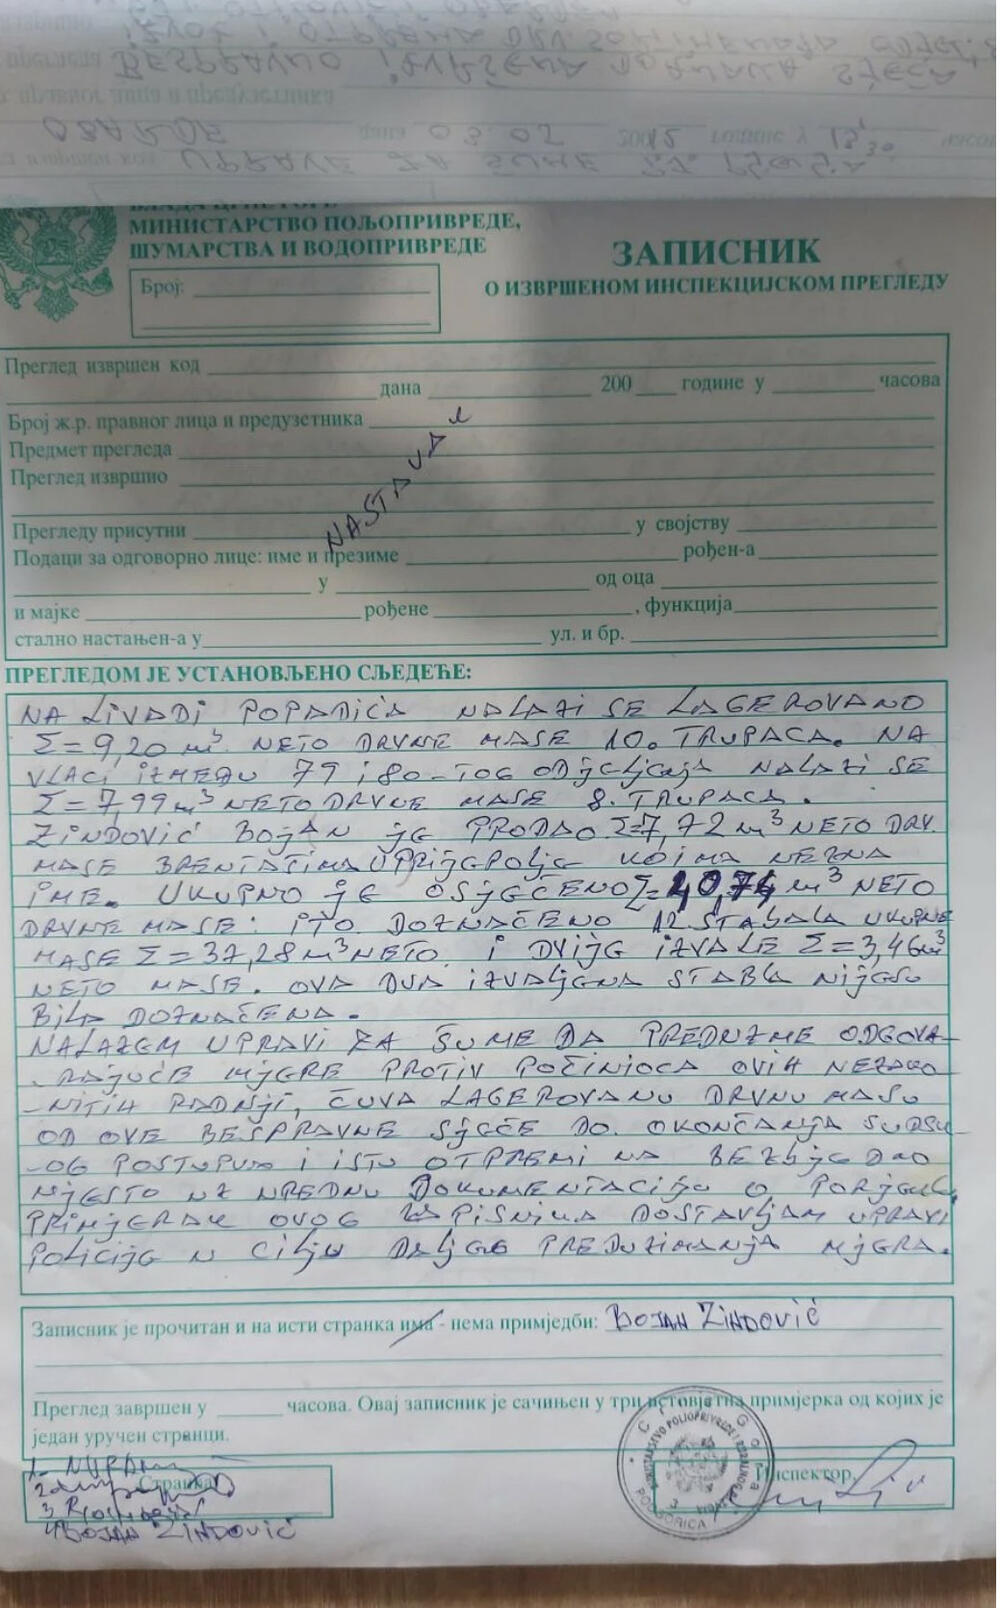 UPRAVE ZA ŠUME PJ. Pljevlja
OBARDE дана 03.07 20012 године у 13,30 часова
BESPRAVNO IZVRŠENA DOZNAKA SJEČA
МИНИСТАРСТВО ПОЉОПРИВРЕДЕ,
ШУМАРСТВА И ВОДОПРИВРЕДЕ
ЗАПИСНИК
О ИЗВРШЕНОМ ИНСПЕКЦИЈСКОМ ПРЕГЛЕДУ
Број:
Преглед извршен код
дана 200 године у часова
Број ж.р. правног лица и предузетника
Предмет прегледа
Преглед извршио
NASTAVAK
Прегледу присутни у својству
Подаци за одговорно лице: име и презиме рођен-а
у од оца
и мајке рођене , функција
стално настањен-а у ул. и бр.
ПРЕГЛЕДОМ ЈЕ УСТАНОВЉЕНО СЉЕДЕЋЕ:
NA LIVADI POPADIĆA NALAZI SE LAGEROVANO
Σ=9,20 m³ NETO DRVNE MASE 10. TRUPACA. NA
VLACI IZMEĐU 79 i 80-TOG ODJELJENJA NALAZI SE
Σ=7,99 m³ NETO DRVNE MASE 8. TRUPACA.
ZINDOVIĆ BOJAN JE PRODAO Σ=7,72 m³ NETO DRV.
MASE BRENTATIMA U PRIJEPOLJE KOJMA NEZNA
IME. UKUPNO JE OSJEČENO Σ=40,74 m³ NETO
DRVNE MASE: I TO DOZNAČENO 12 STABALA UKUPNE
MASE Σ=37,28 m³ NETO I DVIJE IZVALE Σ=3,46 m³
NETO MASE. OVA DVA IZVALJENA STABLA NIJESU
BILA DOZNAČENA.
NALAŽEM UPRAVI ZA ŠUME DA PREDUZME ODGOVA-
-RAJUĆE MJERE PROTIV POČINIOCA OVIH NEZAKO-
-NITIH RADNJI, ČUVA LAGEROVANU DRVNU MASU
OD OVE BESPRAVNE SJEČE DO OKONČANJA SUDSK-
-OG POSTUPKA I ISTU OTPREMI NA BEZBJEDNO
MJESTO UZ UREDNU DOKUMENTACIJU O PORJEKLU,
PRIMJERAK OVOG ZAPISNIKA DOSTAVLJAM UPRAVI
POLICIJE U CILJU DALJEG PREDUZIMANJA MJERA.
Записник је прочитан и на исти странка има - нема примједби: BOJAN ZINDOVIĆ
Преглед завршен у часова. Овај записник је сачињен у три истовјетна примјерка од којих је
један уручен странци.
Странка
Инспектор,
4 BOJAN ZINDOVIĆ
PODGORICA